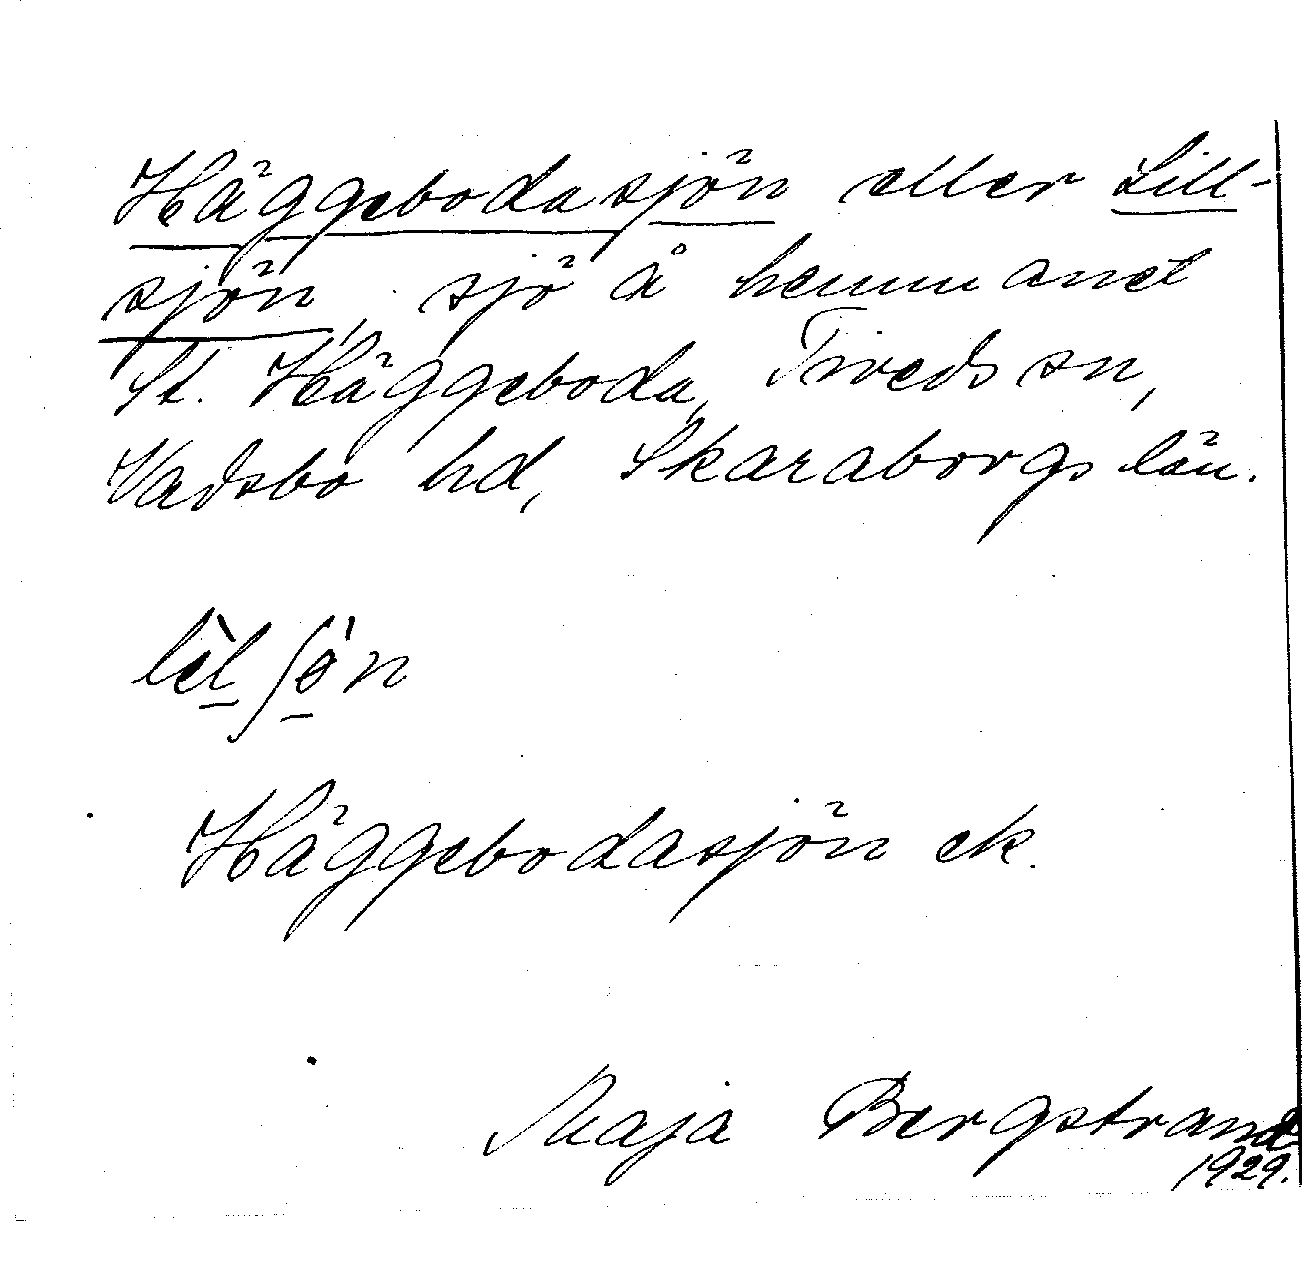 Häggebodasjön eller Lill-
sjön, sjö å hemmanet
St. Häggeboda, Tiveds sn,
Vadsbo hd, Skaraborgs län.
Häggebodasjön ek.
Maja Bergstrand
1929.